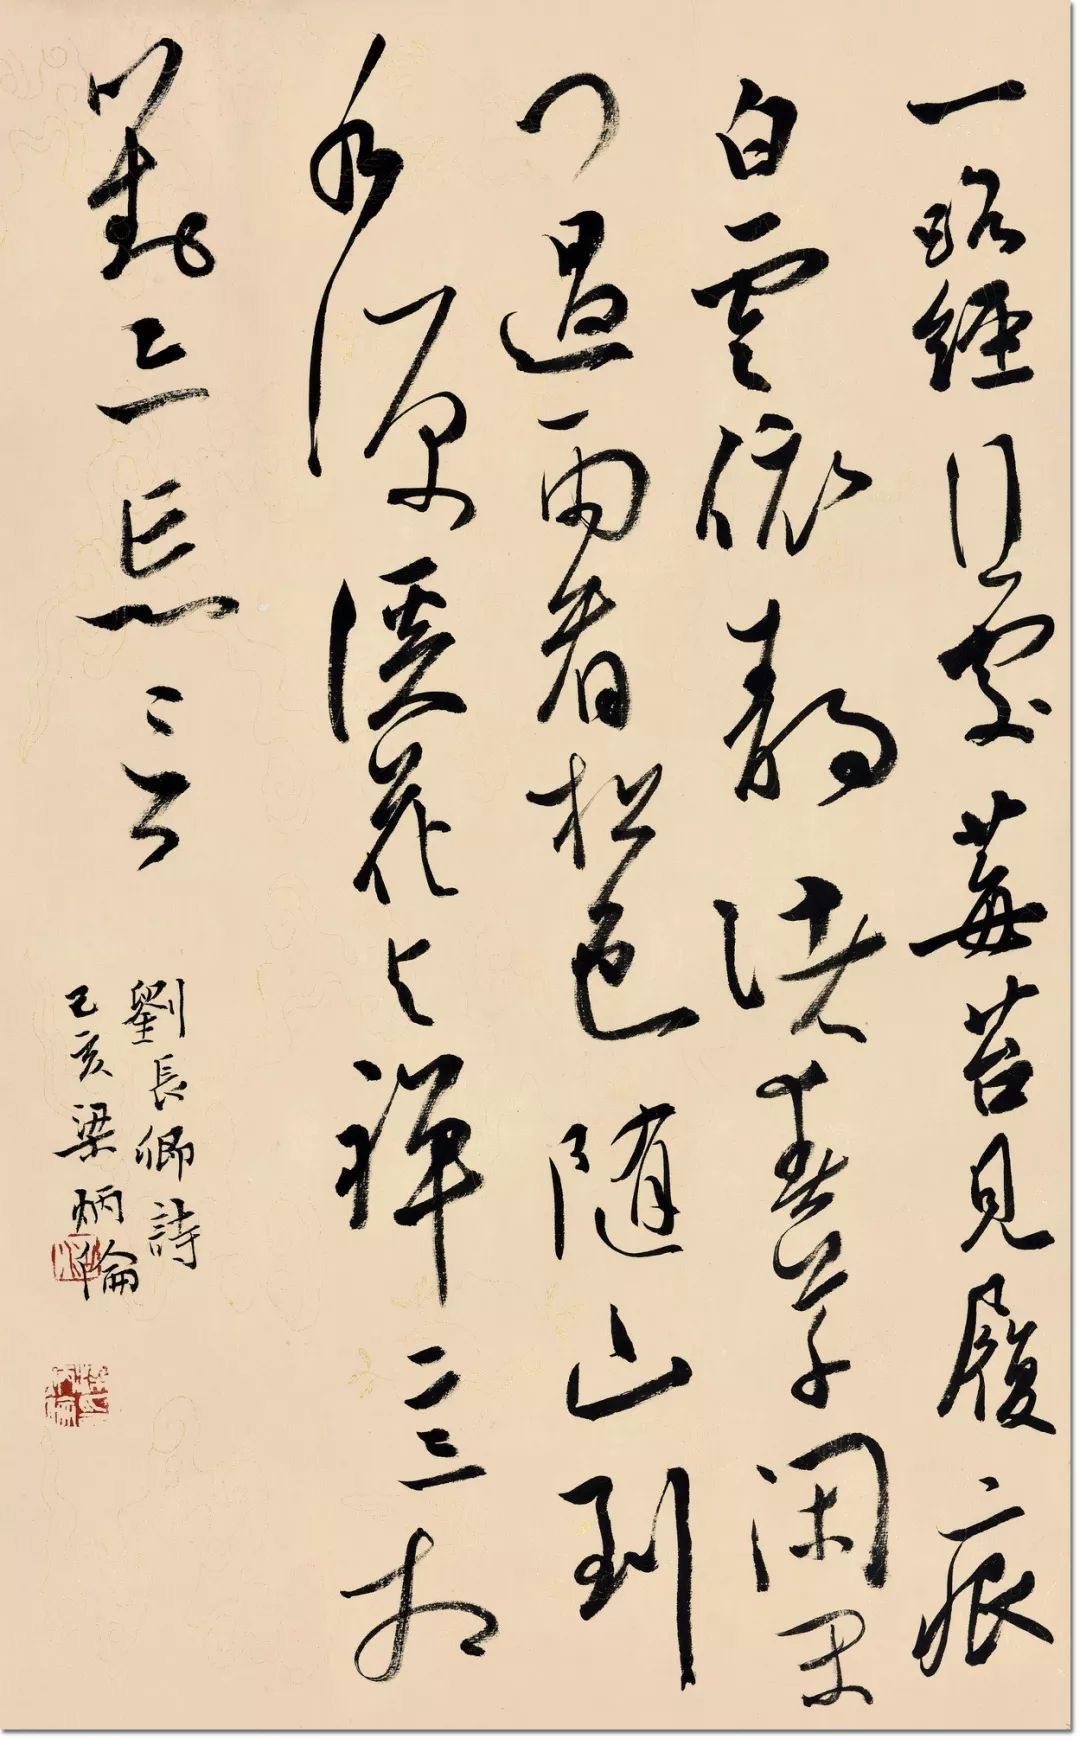 一路經行處莓苔見履痕
白雲依靜渚春草閉閑
門過雨看松色隨山到
水源溪花与禪意相
對亦忘言
劉長卿詩
己亥梁炳倫